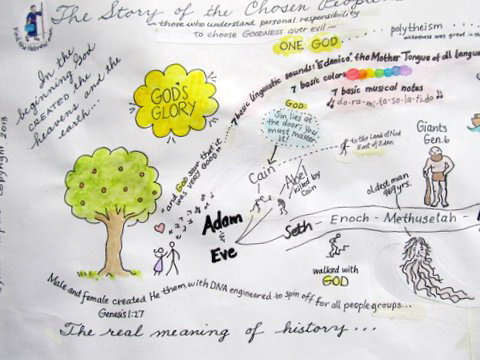 The Story of the Chosen People
in those who understand personal responsibility
to choose GOODNESS over evil
ONE GOD....
polytheism
wickedness was great in the
In the
beginning God
CREATED the
heavens and the
earth...
GOD'S
GLORY
7 basic linguistic sounds: "Edenics", the Mother Tongue of all langu
7 basic colors
7 basic musical notes
do-ra-mi-fa-so-la-ti-do
GOD:
Sin lies at
the door; You
must master
it!
to the Land of Nod
East of Eden
Giants
Gen. 6
and GOD saw that it
was VERY GOOD!!
Cain
Abel
killed by
Cain
oldest man
969 yrs.
Adam
&
Eve
Seth - Enoch - Methuselah -
walked with
GOD
Male and female created He them with DNA engineered to spin off for all people groups...
Genesis 1:27
The real meaning of history...
Copyright 2013